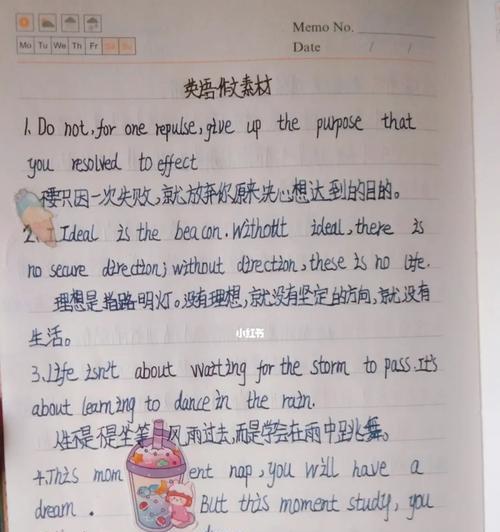 Memo No.
Mo Tu We Th Fr Sa Su
Date / /
英语作文素材
1. Do not, for one repulse, give up the purpose that
you resolved to effect
只因一次失败,就放弃你原来决心想达到的目的。
2. Ideal is the beacon. Without ideal, there is
no secure direction; without direction, these is no life.
理想是指路明灯。没有理想,就没有坚定的方向,就没有
生活。
小红书
3. Life isn't about waiting for the storm to pass. It's
about learning to dance in the rain.
人生不是坐等风雨过去,而是学会在雨中跳舞。
4. This mom ent nap, you will have a
dream. But this moment study, you